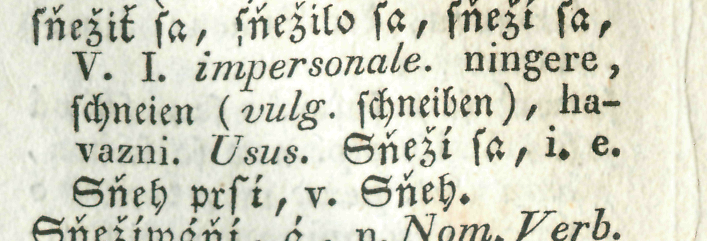 sňežiť sa, sňežilo sa, sňeží sa,
V. I. impersonale. ningere,
schneien (vulg. schneiben), ha-
vazni. Usus. Sňeží sa, i. e.
Sňeh prší, v. Sňeh.
Nom. Verb.